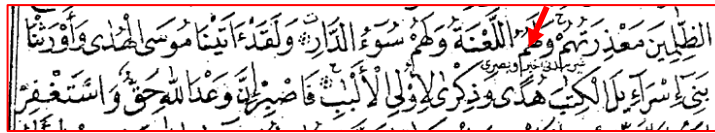 الظَّلِمِينَ مَعْذِرَتُهُمْ وَلَهُمُ اللَّعْنَةُ وَلَهُمْ سُوءُ الدَّارِ وَلَقَدْ ءَاتَيْنَا مُوسَى الْهُدَى وَأَوْرَثْنَا
بَنِي إِسْرَاءِيلَ الْكِتَبَ هُدًى وَذِكْرَى لِأُولِي الْأَلْبَبِ فَاصْبِرْ إِنَّ وَعْدَ اللَّهِ حَقٌّ وَاسْتَغْفِرْ